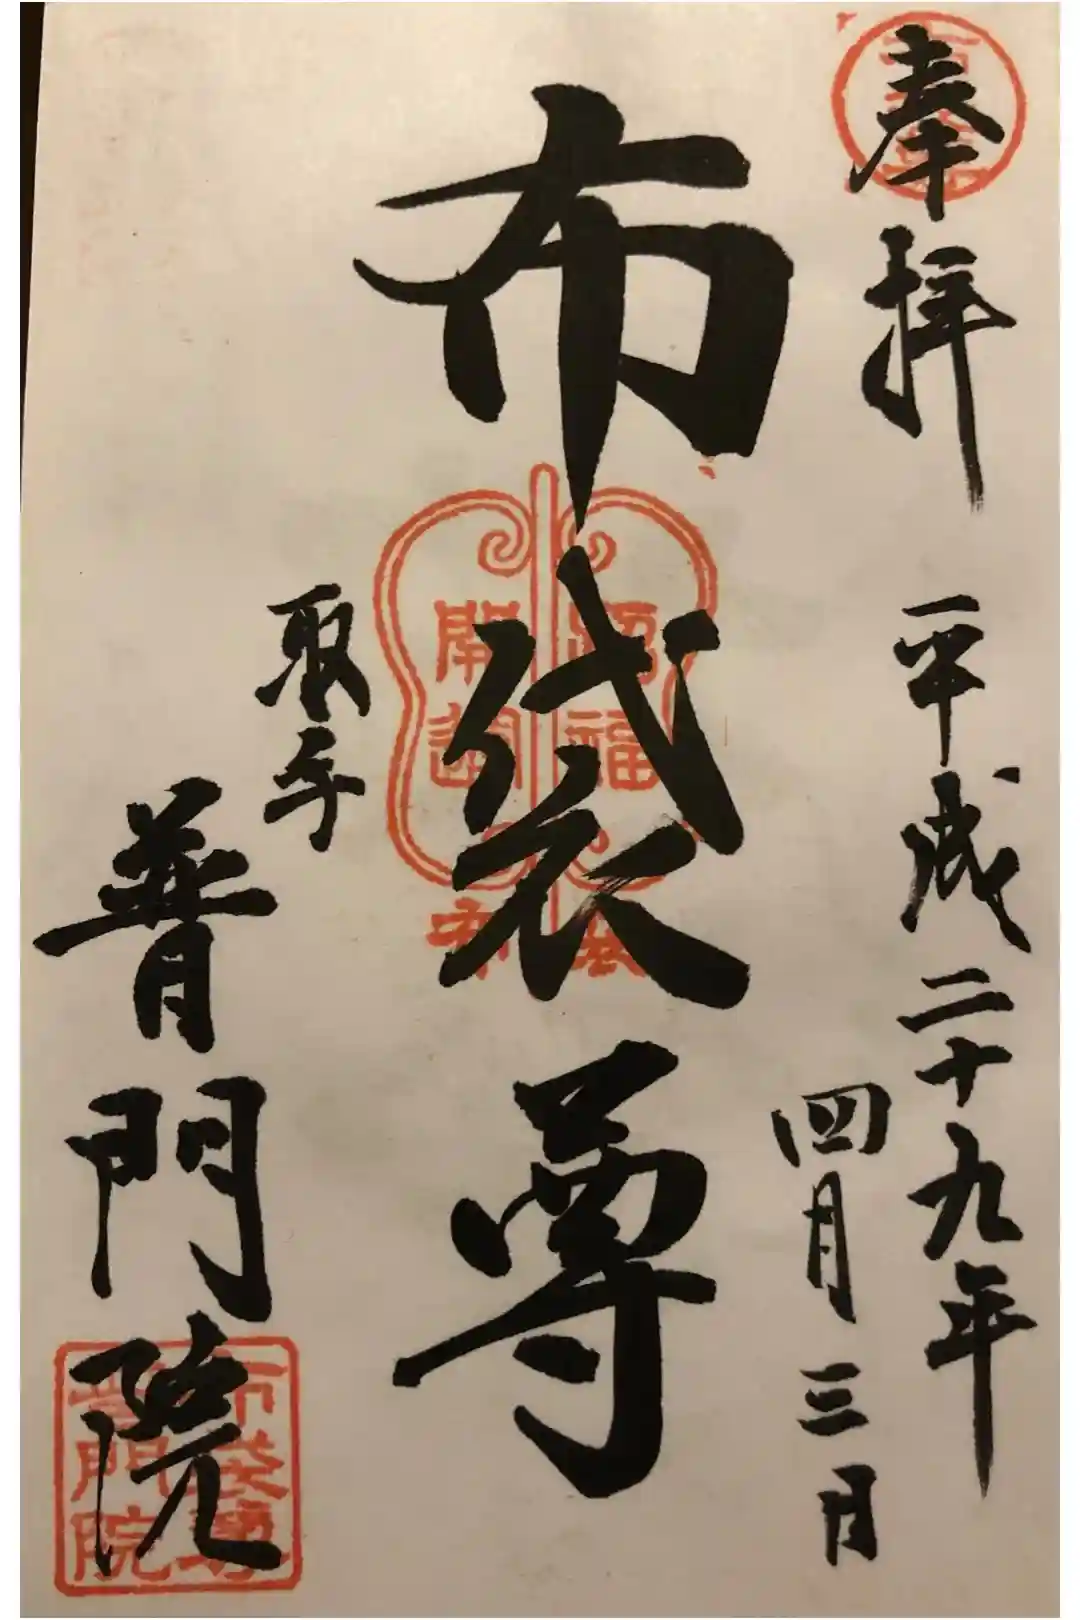 奉拝
平成二十九年
四月三日
布袋尊
取手
普門院
開運
福
布袋尊
普門院